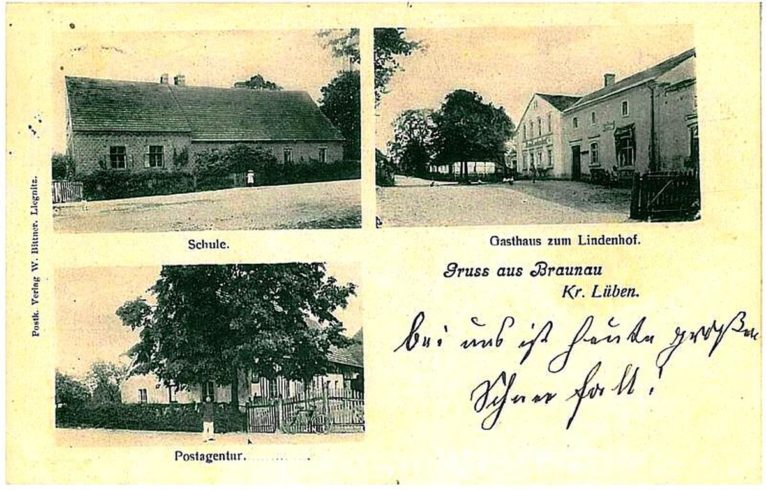 Schule.
Gasthaus zum Lindenhof.
Gruss aus Braunau
Kr. Lüben.
bei uns ist heute großer
Schnee fall!
Postagentur.............
Postk. Verlag W. Bittner. Liegnitz.